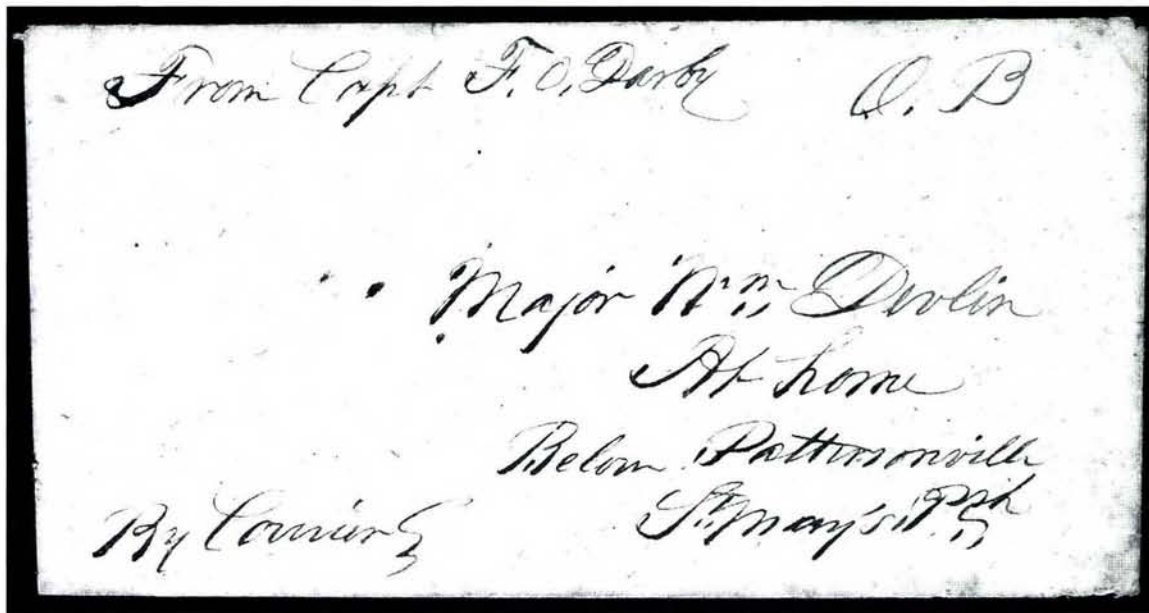 From Capt F. O. Darby O. B
Major Wm Devlin
At home
Below Pattersonville
St Mary's Psh
By Courier